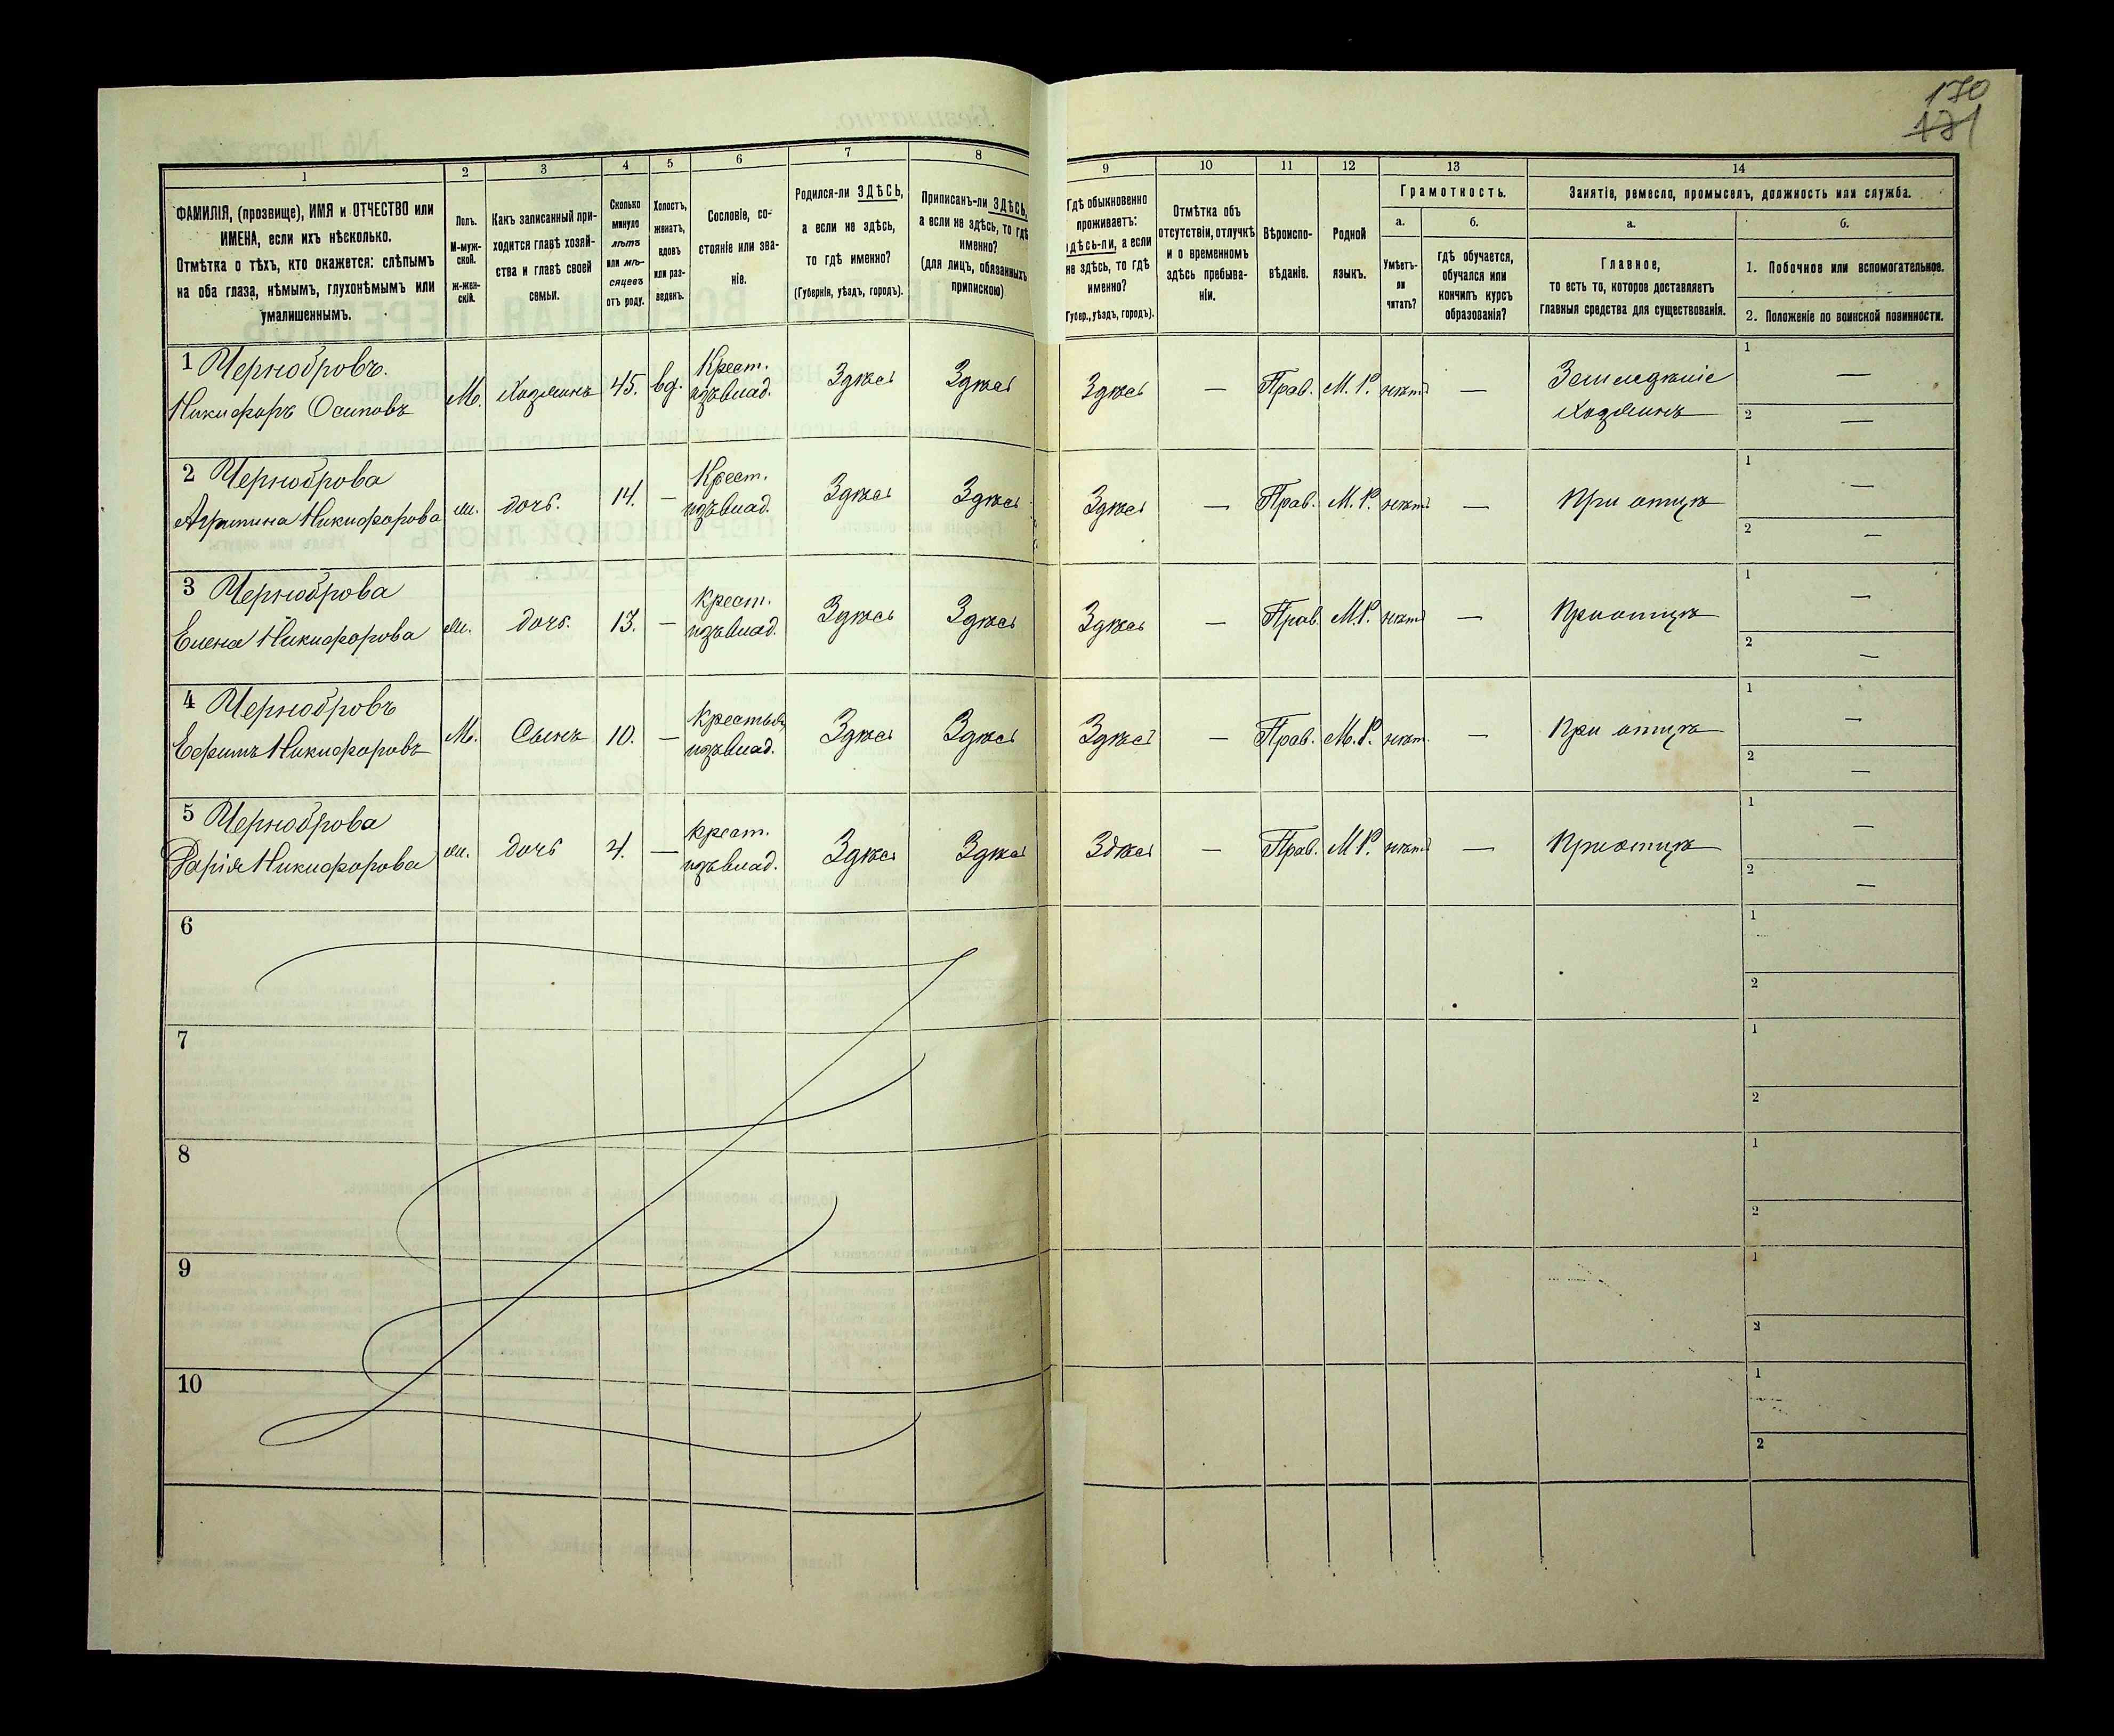 170
171
1
2
3
4
5
6
7
8
9
10
11
12
13
14
ФАМИЛІЯ, (прозвище), ИМЯ и ОТЧЕСТВО или
ИМЕНА, если ихъ нѣсколько.
Отмѣтка о тѣхъ, кто окажется: слѣпымъ
на оба глаза, нѣмымъ, глухонѣмымъ или
умалишеннымъ.
Полъ.
М-муж-
ской.
Ж-жен-
скій.
Какъ записанный при-
ходится главѣ хозяй-
ства и главѣ своей
семьи.
Сколько
минуло
лѣтъ
или мѣ-
сяцевъ
отъ роду.
Холостъ,
женатъ,
вдовъ
или раз-
веденъ.
Сословіе, со-
стояніе или зва-
ніе.
Родился-ли ЗДѢСЬ,
а если не здѣсь,
то гдѣ именно?
(Губернія, уѣздъ, городъ).
Приписанъ-ли ЗДѢСЬ,
а если не здѣсь, то гдѣ
именно?
(для лицъ, обязанныхъ
припискою)
Гдѣ обыкновенно
проживаетъ:
здѣсь-ли, а если
не здѣсь, то гдѣ
именно?
(Губер., уѣздъ, городъ).
Отмѣтка объ
отсутствіи, отлучкѣ
и о временномъ
здѣсь пребыва-
ніи.
Вѣроиспо-
вѣданіе.
Родной
языкъ.
Грамотность.
а.
Умѣетъ-
ли
читать?
б.
гдѣ обучается,
обучался или
кончилъ курсъ
образованія?
Занятіе, ремесло, промыселъ, должность или служба.
а.
Главное,
то есть то, которое доставляетъ
главныя средства для существованія.
б.
1. Побочное или вспомогательное.
2. Положеніе по воинской повинности.
1 Чернобровъ.
Никифоръ Осиповъ
М. Хозяинъ 45. вд. Крест. изъ влад. Здѣсь Здѣсь Здѣсь — Прав. М. Р. нѣтъ — Земледѣліе
Хозяинъ
1 —
2 —
2 Черноброва
Агрипина Никифорова
ж. дочь. 14. — Крест. изъ влад. Здѣсь Здѣсь Здѣсь — Прав. М. Р. нѣтъ — При отцѣ
1 —
2 —
3 Черноброва
Елена Никифорова
ж. дочь. 13. — Крест. изъ влад. Здѣсь Здѣсь Здѣсь — Прав. М.Р. нѣтъ — При отцѣ
1 —
2 —
4 Чернобровъ
Ефимъ Никифоровъ
М. Сынъ 10. — изъ влад. Здѣсь Здѣсь Здѣсь — Прав. М. Р. нѣт. — При отцѣ
1 —
2 —
5 Черноброва
Дарія Никифорова
ж. дочь 4. — Крест. изъ влад. Здѣсь Здѣсь Здѣсь — Прав. М Р. нѣтъ — При отцѣ
1 —
2 —
6
1
2
7
1
2
8
1
2
9
1
2
10
1
2